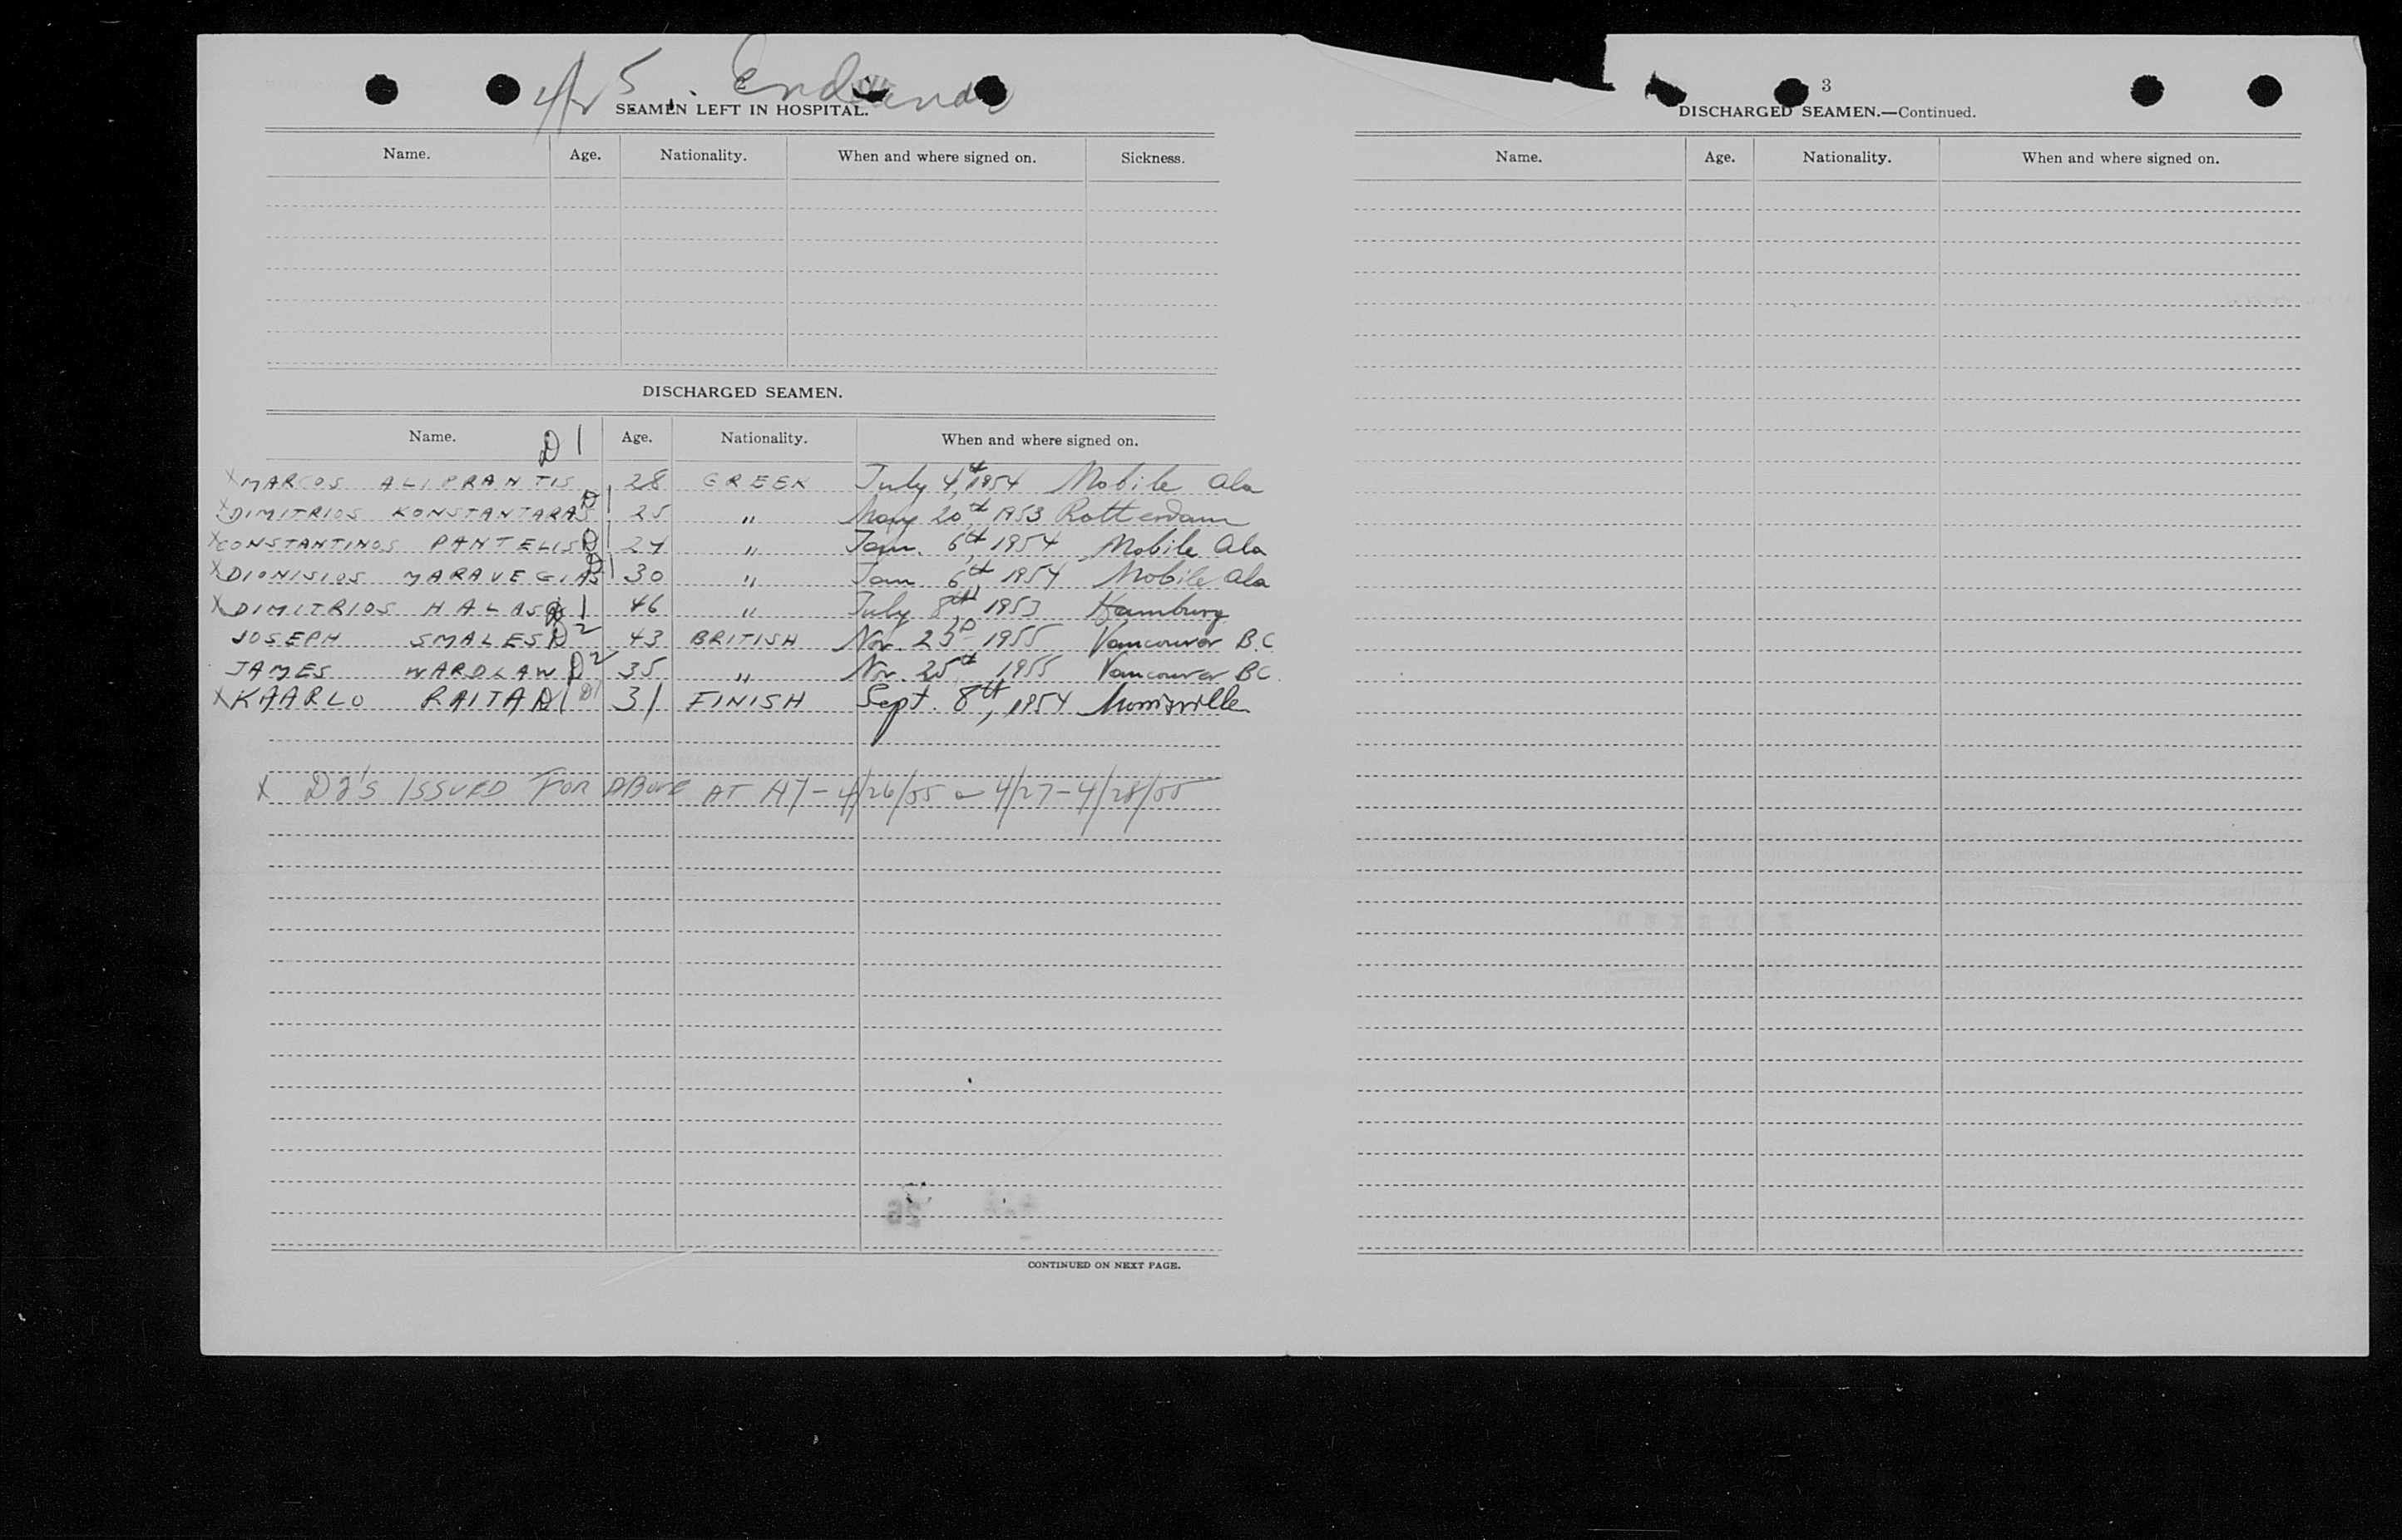 4/25
SEAMEN LEFT IN HOSPITAL.
Name. Age. Nationality. When and where signed on. Sickness.
DISCHARGED SEAMEN.
Name. Age. Nationality. When and where signed on.
D1
X MARCOS ALIPRANTIS 28 GREEK July 4th, 1954 Mobile Ala
X DIMITRIOS KONSTANTARAS D1 25 " May 20th 1953 Rotterdam
X CONSTANTINOS PANTELIS D1 24 " Jan. 6th 1954 Mobile Ala
X DIONISIOS MARAVEGIAS D1 30 " Jan 6th, 1954 Mobile Ala
X DIMITRIOS HALAS D1 46 " July 8th 1953 Hamburg
JOSEPH SMALES D2 43 BRITISH Nov. 23D 1955 Vancouver B.C
JAMES WARDLAW D2 35 " Nov. 25th 1955 Vancouver BC.
X KAARLO RAITA D1 D1 31 FINISH Sept. 8th, 1954 Morrisville
X ISSUED FOR ABOVE AT - 4/26/55 4/27-4/28/55
CONTINUED ON NEXT PAGE.
3
DISCHARGED SEAMEN.—Continued.
Name. Age. Nationality. When and where signed on.